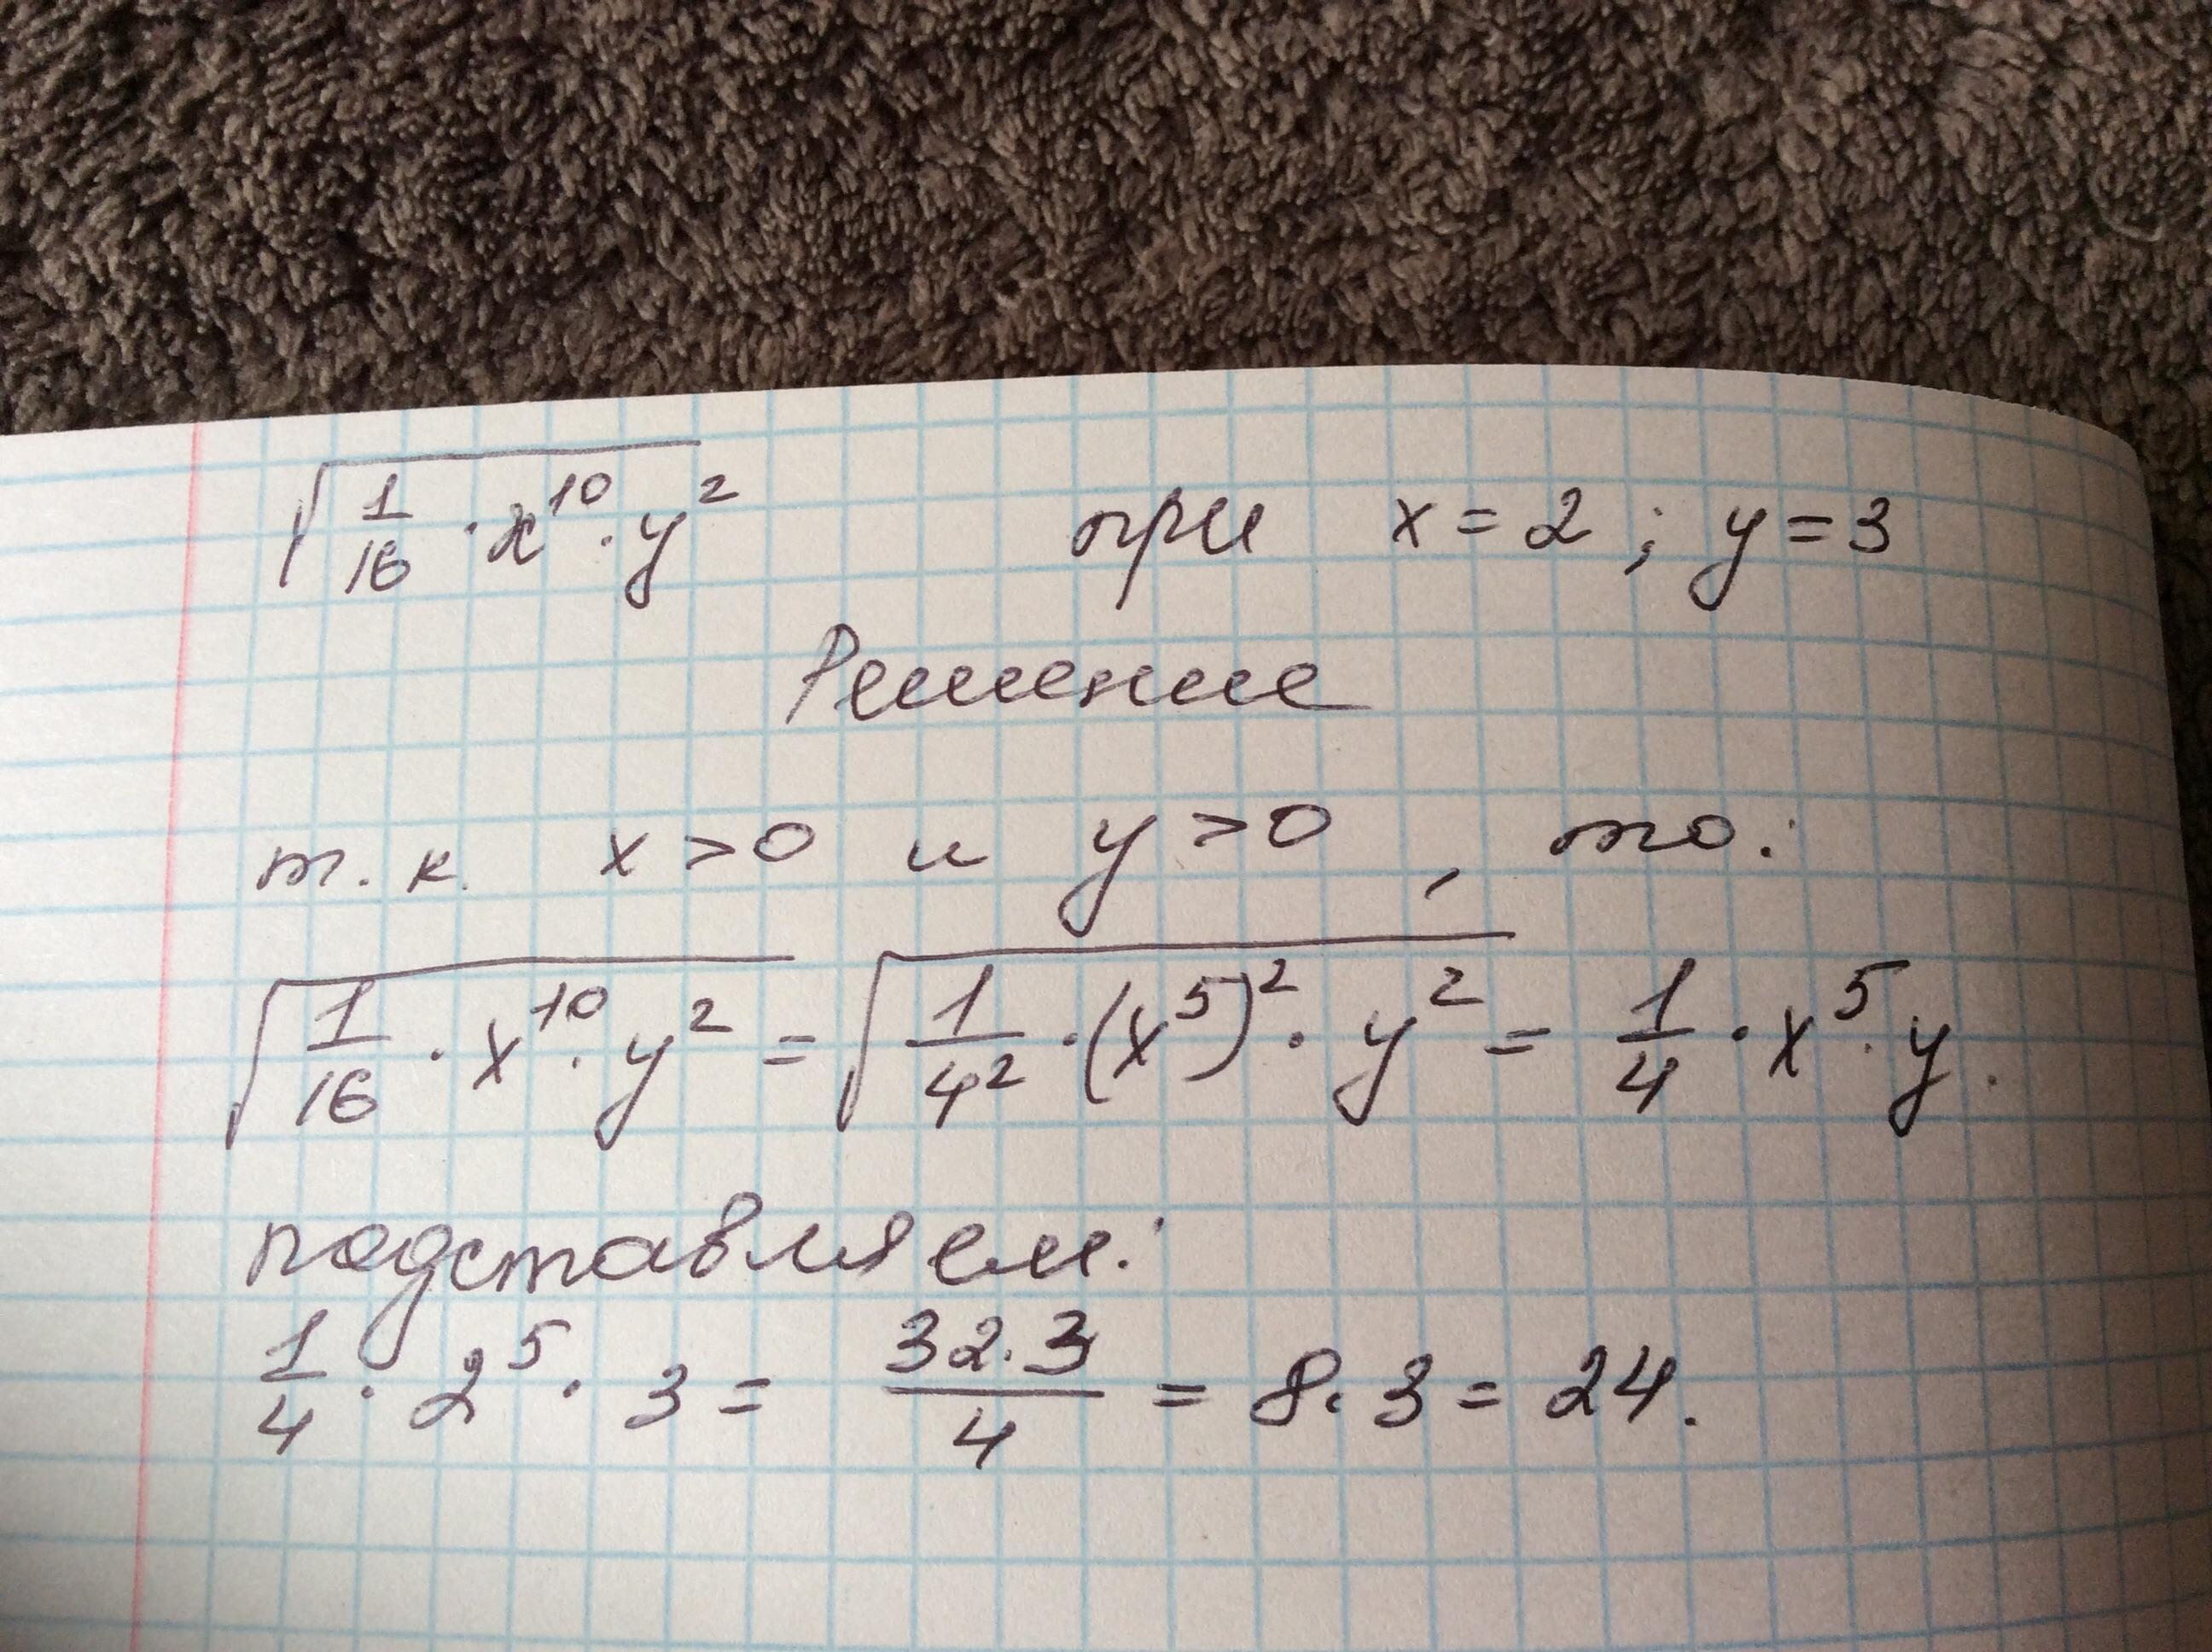 √(1/16 · x¹⁰ · y²) при x = 2 ; y = 3
Решение
т. к. x > 0 и y > 0 , то:
√(1/16 · x¹⁰ · y²) = √(1/4² · (x⁵)² · y²) = 1/4 · x⁵ · y.
подставляем:
1/4 · 2⁵ · 3 = 32·3/4 = 8·3 = 24.